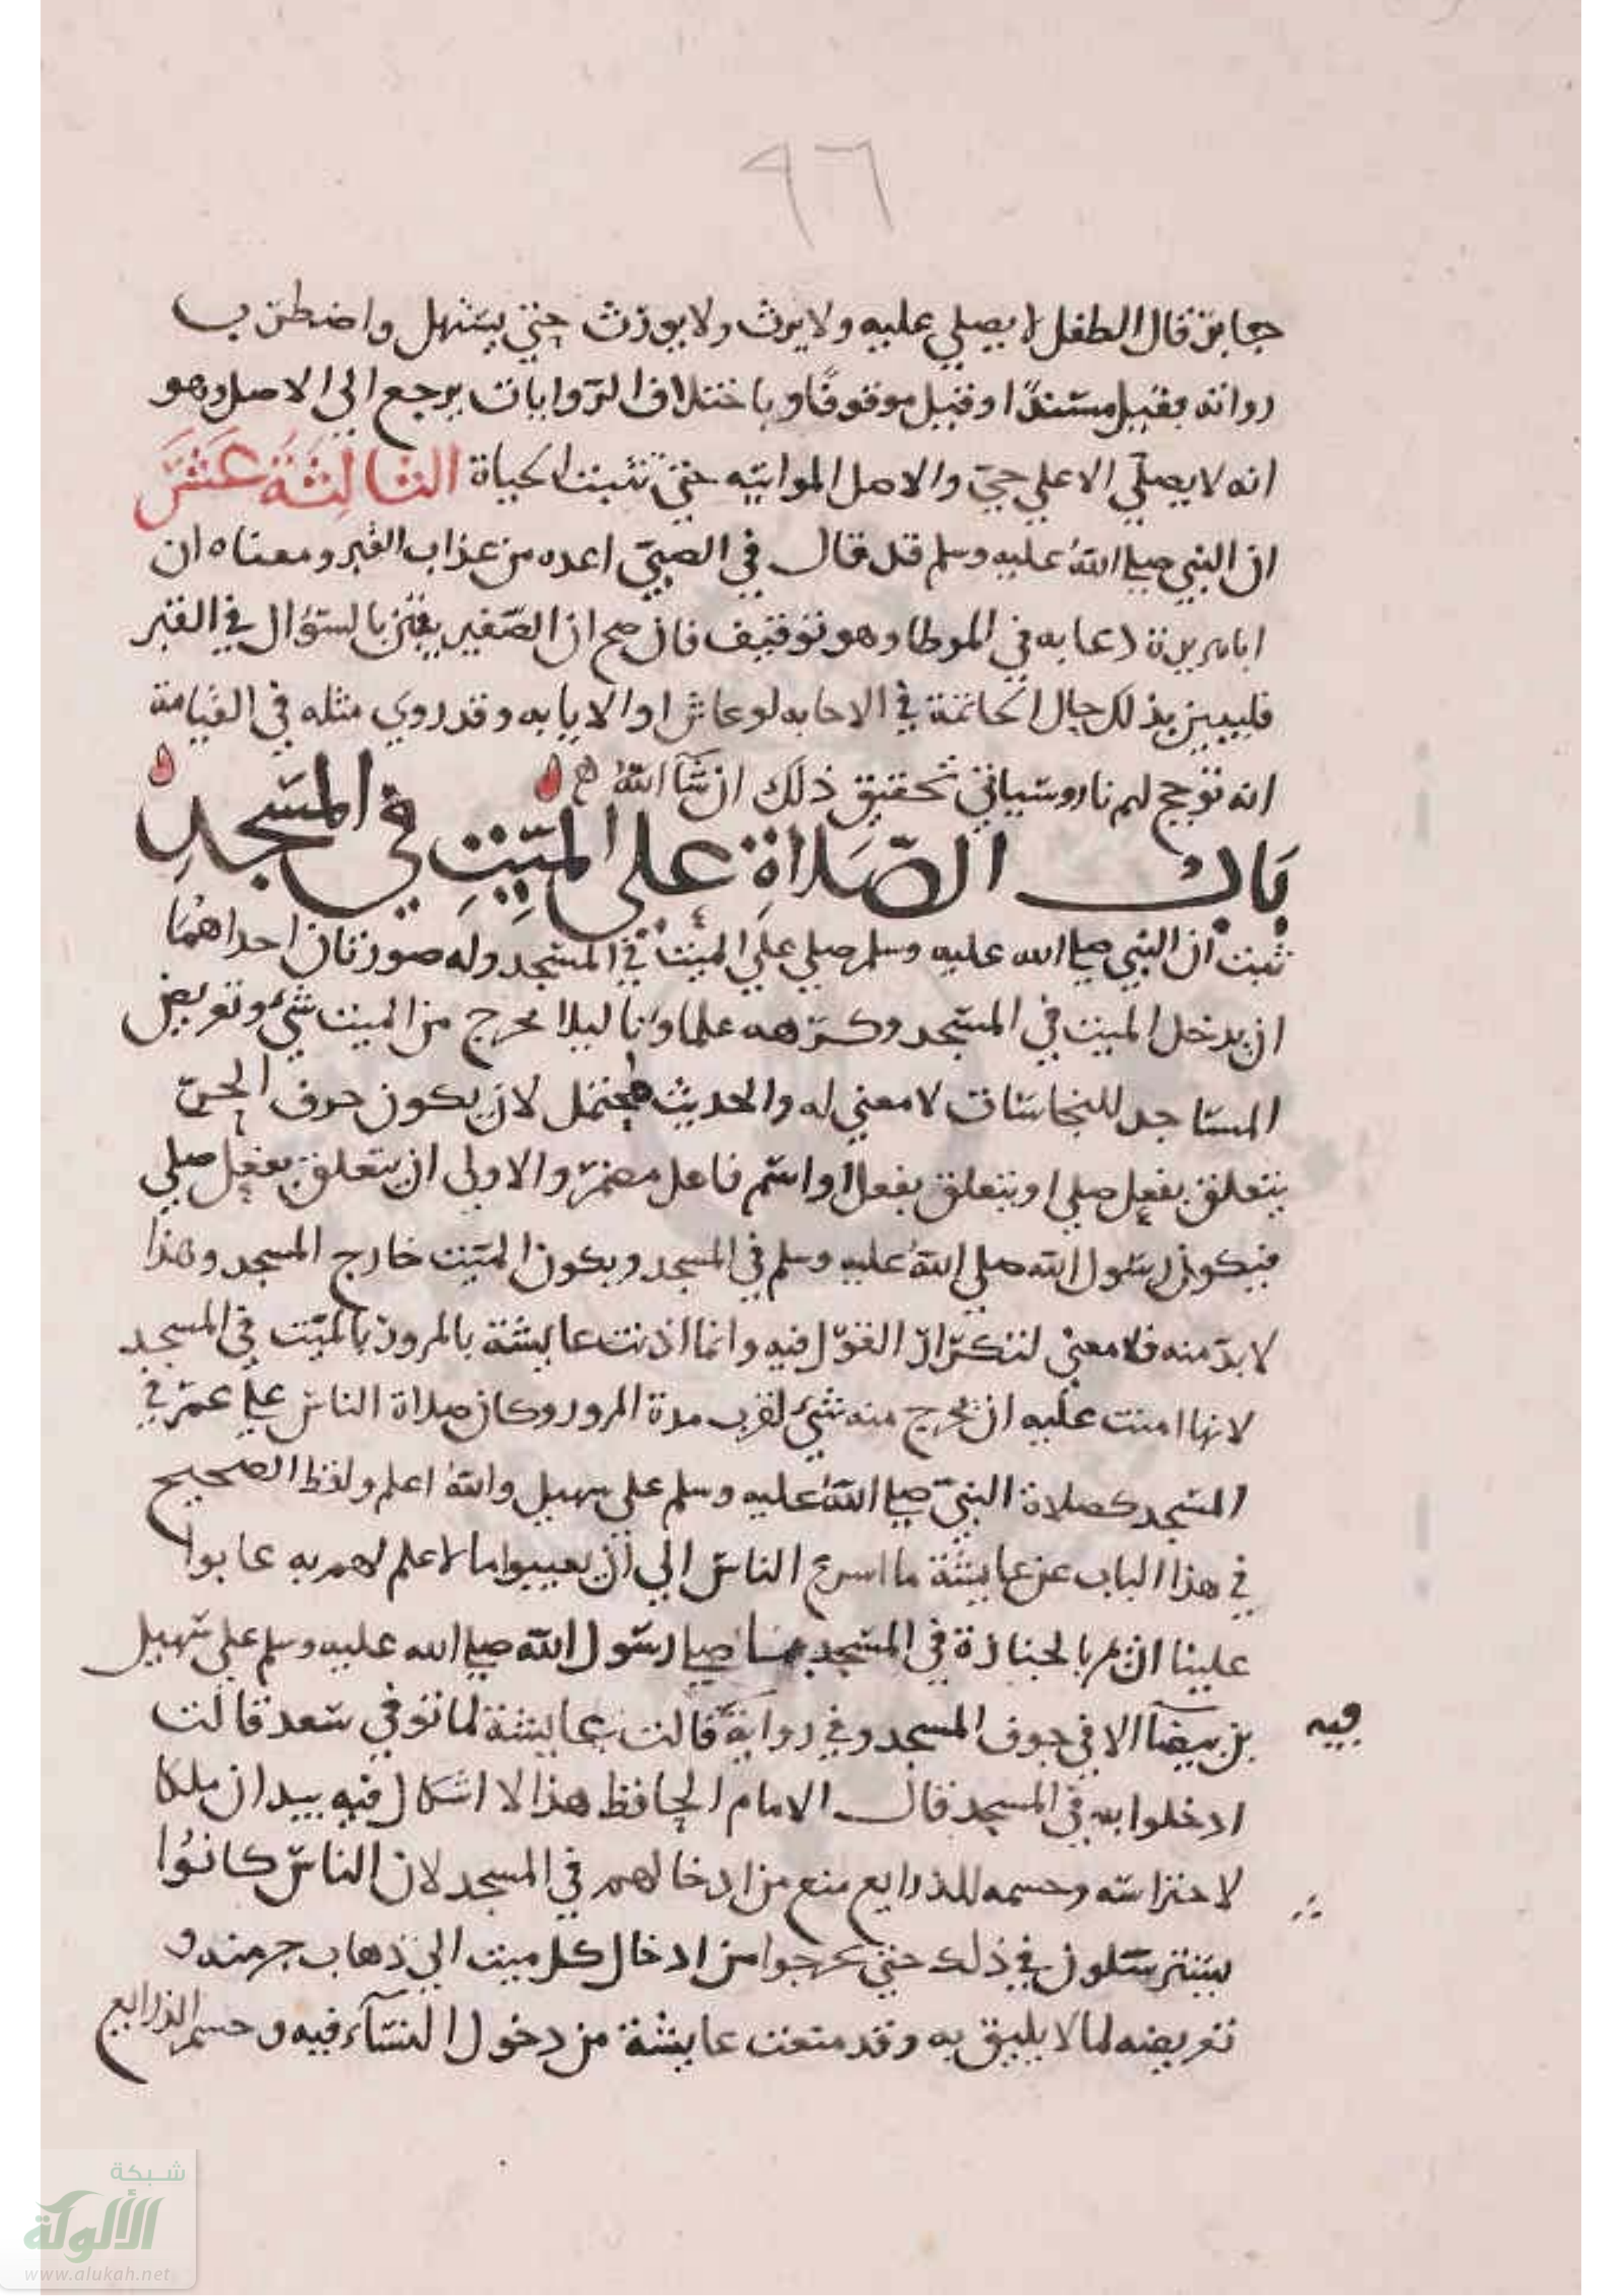 ٩٦
جابر قال الطفل لا يصلي عليه ولا يرث ولا يورث حتي يستهل واضطرب
رواته فقيل مسندًا وقيل موقوفًا وباختلاف الروايات يرجع الي الاصل وهو
انه لا يصلي الا علي حيّ والاصل المواتيه حتي تثبت الحياة الثالثة عشر
ان النبي صلي الله عليه وسلم قد قال في الصبيّ اعده من عذاب القبر ومعناه ان
ابا هريرة دعا به في الموطا وهو توقيف فان صح ان الصّغير يفتن بالسؤال في القبر
فليبين بذلك حال الخاتمة في الاجابه لو عاش او الاباية وقد روي مثله في القيامة
انه تؤجج لهم نار وسياتي تحقيق ذلك ان شآ الله
بَابُ الصّلاة على الميّتِ في المسجدِ
ثبت ان النبي صلي الله عليه وسلم صلي علي الميت في المسجد وله صورتان احداهما
ان يدخل الميت في المسجد وكرهه علماونا ليلا يخرج من الميت شيء وتعريض
المساجد للنجاسات لا معني له والحديث محتمل لان يكون حرف الجرّ
يتعلق بفعل صلي او يتعلق بفعل او اسم فاعل مضمر والاولى ان يتعلق بفعل صلي
فيكون رسول الله صلي الله عليه وسلم في المسجد ويكون الميّت خارج المسجد وهذا
لا بدّ منه فلا معني لتكرار القول فيه وانما اذنت عايشة بالمرور بالميّت في المسجد
لانها امنت عليه ان يخرج منه شيء لقرب مدة المرور وكان صلاة الناس علي عمر في
المسجد كصلاة النبيّ صلي الله عليه وسلم على سهيل والله اعلم ولفظ الصحيح
في هذا الباب عن عايشة ما اسرع الناس الي ان يعيبوا ما لا علم لهم به عابوا
علينا ان نمر بالجنازة في المسجد ما صلي رسول الله صلي الله عليه وسلم علي سهيل
بن بيضآ الا في جوف المسجد وفي رواية قالت عايشة لما توفي سعد قالت
فيه
ادخلوا به في المسجد قال الامام الحافظ هذا لا اشكال فيه بيد ان ملكا
لاحتراسه وحسمه للذرايع منع من ادخالهم في المسجد لان الناس كانوُا
يسترسلون في ذلك حتي يخرجوا من ادخال كل ميت الي ذهاب حرمته و
تعريضه لما لا يليق به وقد منعت عايشة من دخول النسآء فيه و حسم الذرايع
شبكة
الألوكة
www.alukah.net